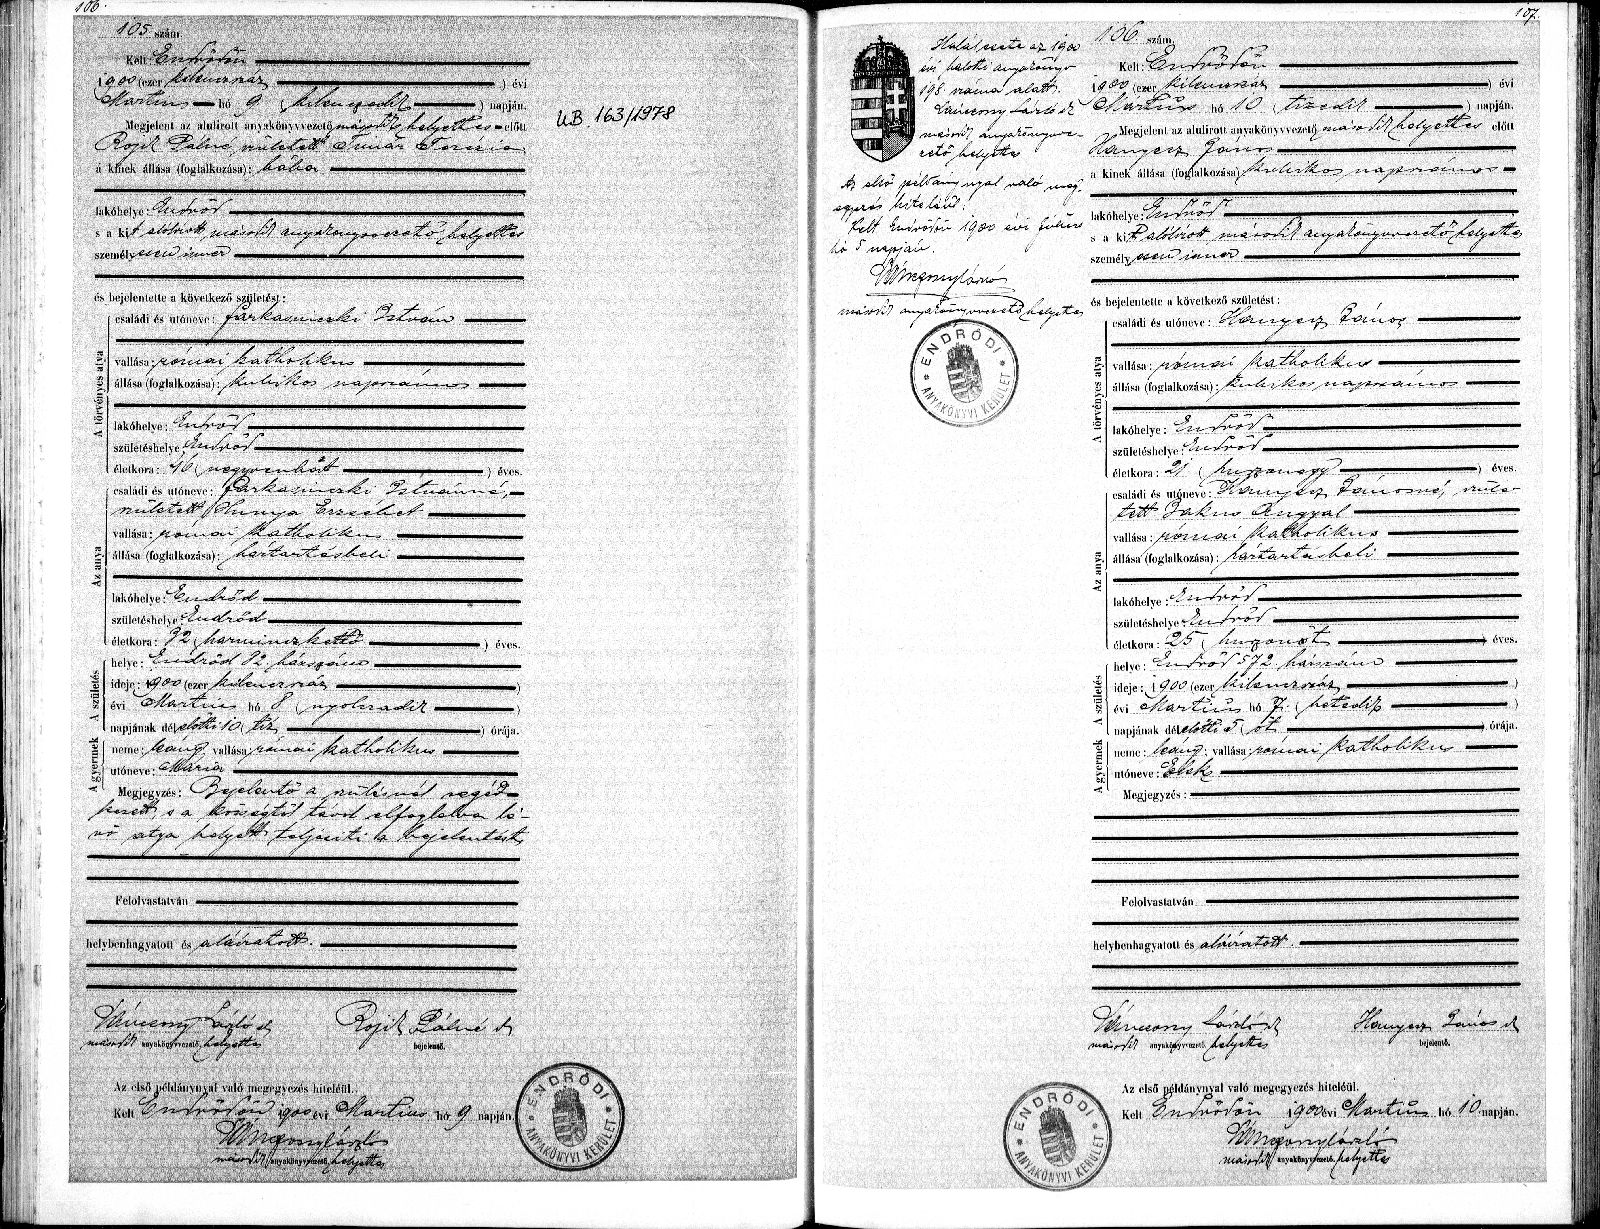 106.
105 szám.
Kelt: Endrődön
1900 (ezer kilenczszáz ) évi
Martius hó 9 (kilenczedik ) napján.
Megjelent az alulirott anyakönyvvezető második helyettes előtt
Rojik Pálné, született Timár Terézia
a kinek állása (foglalkozása): bába
lakóhelye: Endrőd
s a kit alólirott, második anyakönyvvezető helyettes
személyesen ismer
és bejelentette a következő születést:
A törvényes atya
családi és utóneve: Farkasinszki István
vallása: római katholikus
állása (foglalkozása): kubikos napszámos
lakóhelye: Endrőd
születéshelye: Endrőd
életkora: 46 (negyvenhat ) éves.
Az anya
családi és utóneve: Farkasinszki Istvánné,
született Hunya Erzsébet
vallása: római katholikus
állása (foglalkozása): háztartásbeli
lakóhelye: Endrőd
születéshelye: Endrőd
életkora: 32 (harminczkettő ) éves.
A születés
helye: Endrőd 82 házszám
ideje: 1900 (ezer kilenczszáz )
évi Martius hó 8 (nyolczadik )
napjának délelőtti 10 (tíz ) órája.
A gyermek
neme: leány, vallása: római katholikus
utóneve: Mária
Megjegyzés: Bejelentő a szülésnél segéd-
kezett, s a községtől távol elfoglalva lé-
vő atya helyett teljesíti a bejelentést
Felolvastatván
helybenhagyatott és aláiratott.
Vánczony László sk
második anyakönyvvezető, helyettes
Rojik Pálné sk
bejelentő.
Az első példánynyal való megegyezés hiteléül.
Kelt Endrődön 1900 évi Martius hó 9 napján.
Vánczony László
második anyakönyvvezető, helyettes
ENDRŐDI ANYAKÖNYVI KERÜLET
U.B. 163/1978
107.
Halálesete az 1900
évi halotti anyakönyv
198 száma alatt.
Vánczony László sk
második anyakönyvve-
zető helyettes
Az első példánynyal való meg-
egyezés hiteléül:
Kelt Endrődön 1900 évi Julius
hó 5 napján.
Vánczony László
második anyakönyvvezető helyettes
ENDRŐDI ANYAKÖNYVI KERÜLET
106 szám.
Kelt: Endrődön
1900 (ezer kilenczszáz ) évi
Martius hó 10 (tizedik ) napján.
Megjelent az alulirott anyakönyvvezető második helyettes előtt
Hanyecz János
a kinek állása (foglalkozása) kubikos napszámos
lakóhelye: Endrőd
s a kit alólirott, második anyakönyvvezető helyettes
személyesen ismer
és bejelentette a következő születést:
A törvényes atya
családi és utóneve: Hanyecz János
vallása: római katholikus
állása (foglalkozása): kubikos napszámos
lakóhelye: Endrőd
születéshelye: Endrőd
életkora: 21 (huszonegy ) éves.
Az anya
családi és utóneve: Hanyecz Jánosné, szüle-
tett Jakus Angyal
vallása: római katholikus
állása (foglalkozása): háztartásbeli
lakóhelye: Endrőd
születéshelye: Endrőd
életkora: 25 (huszonöt ) éves.
A születés
helye: Endrőd 572 házszám
ideje: 1900 (ezer kilenczszáz )
évi Martius hó 7. (hetedik )
napjának délelőtti 5 (öt ) órája.
A gyermek
neme: leány; vallása: római katholikus
utóneve: Elek
Megjegyzés:
Felolvastatván
helybenhagyatott és aláiratott.
Vánczony László sk
második anyakönyvvezető, helyettes
Hanyecz János sk
bejelentő.
Az első példánynyal való megegyezés hiteléül.
Kelt Endrődön 1900 évi Martius hó 10 napján.
Vánczony László
második anyakönyvvezető. helyettes
ENDRŐDI ANYAKÖNYVI KERÜLET